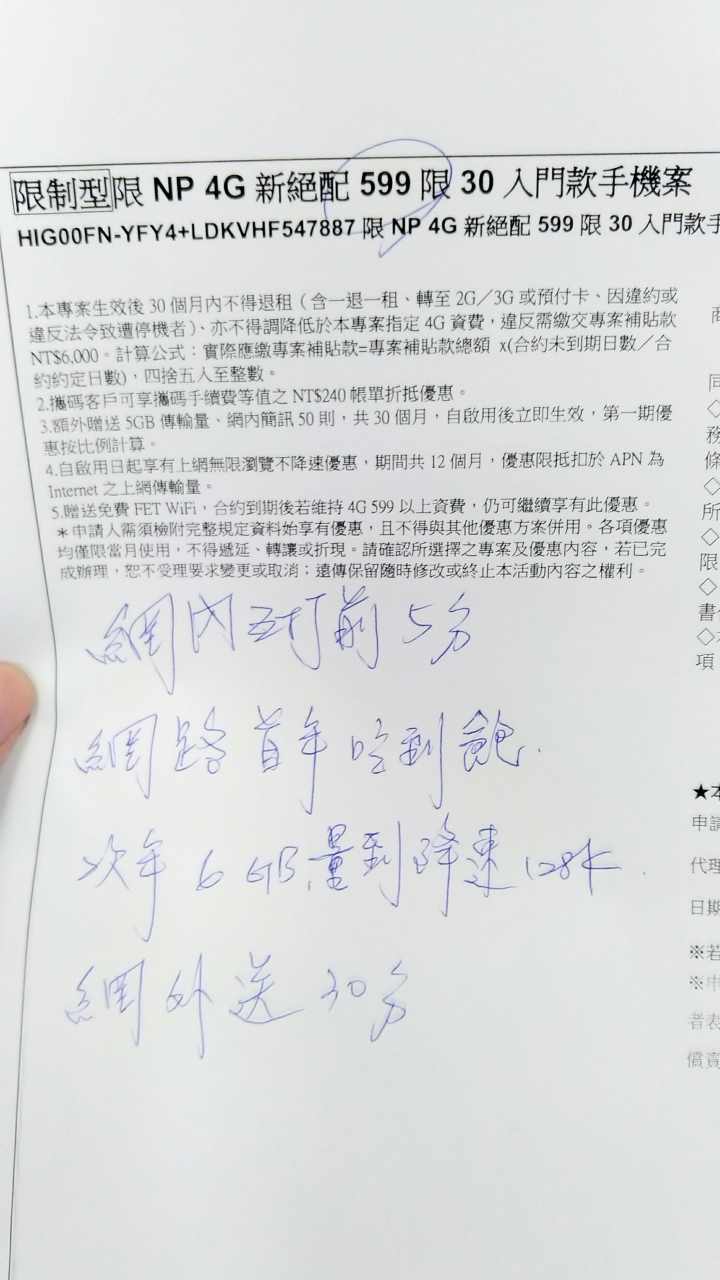 限制型限 NP 4G 新絕配 599 限 30 入門款手機案
HIG00FN-YFY4+LDKVHF547887 限 NP 4G 新絕配 599 限 30 入門款手
1.本專案生效後 30 個月內不得退租（含一退一租、轉至 2G／3G 或預付卡、因違約或
違反法令致遭停機者）、亦不得調降低於本專案指定 4G 資費，違反需繳交專案補貼款
NT$6,000。計算公式：實際應繳專案補貼款=專案補貼款總額 x(合約未到期日數／合
約約定日數)，四捨五入至整數。
2.攜碼客戶可享攜碼手續費等值之 NT$240 帳單折抵優惠。
3.額外贈送 5GB 傳輸量、網內簡訊 50 則，共 30 個月，自啟用後立即生效，第一期優
惠按比例計算。
4.自啟用日起享有上網無限瀏覽不降速優惠，期間共 12 個月，優惠限抵扣於 APN 為
Internet 之上網傳輸量。
5.贈送免費 FET WiFi，合約到期後若維持 4G 599 以上資費，仍可繼續享有此優惠。
＊申請人需須檢附完整規定資料始享有優惠，且不得與其他優惠方案併用。各項優惠
均僅限當月使用，不得遞延、轉讓或折現。請確認所選擇之專案及優惠內容，若已完
成辦理，恕不受理要求變更或取消；遠傳保留隨時修改或終止本活動內容之權利。
網內互打前 5分
網路首年吃到飽.
次年 6 GB量到降速 128K.
網外送 30分
商
同
◇
務
條
◇
所
◇
限
◇
書
◇
項
★本
申請
代理
日期
※若
※申
者表
償責